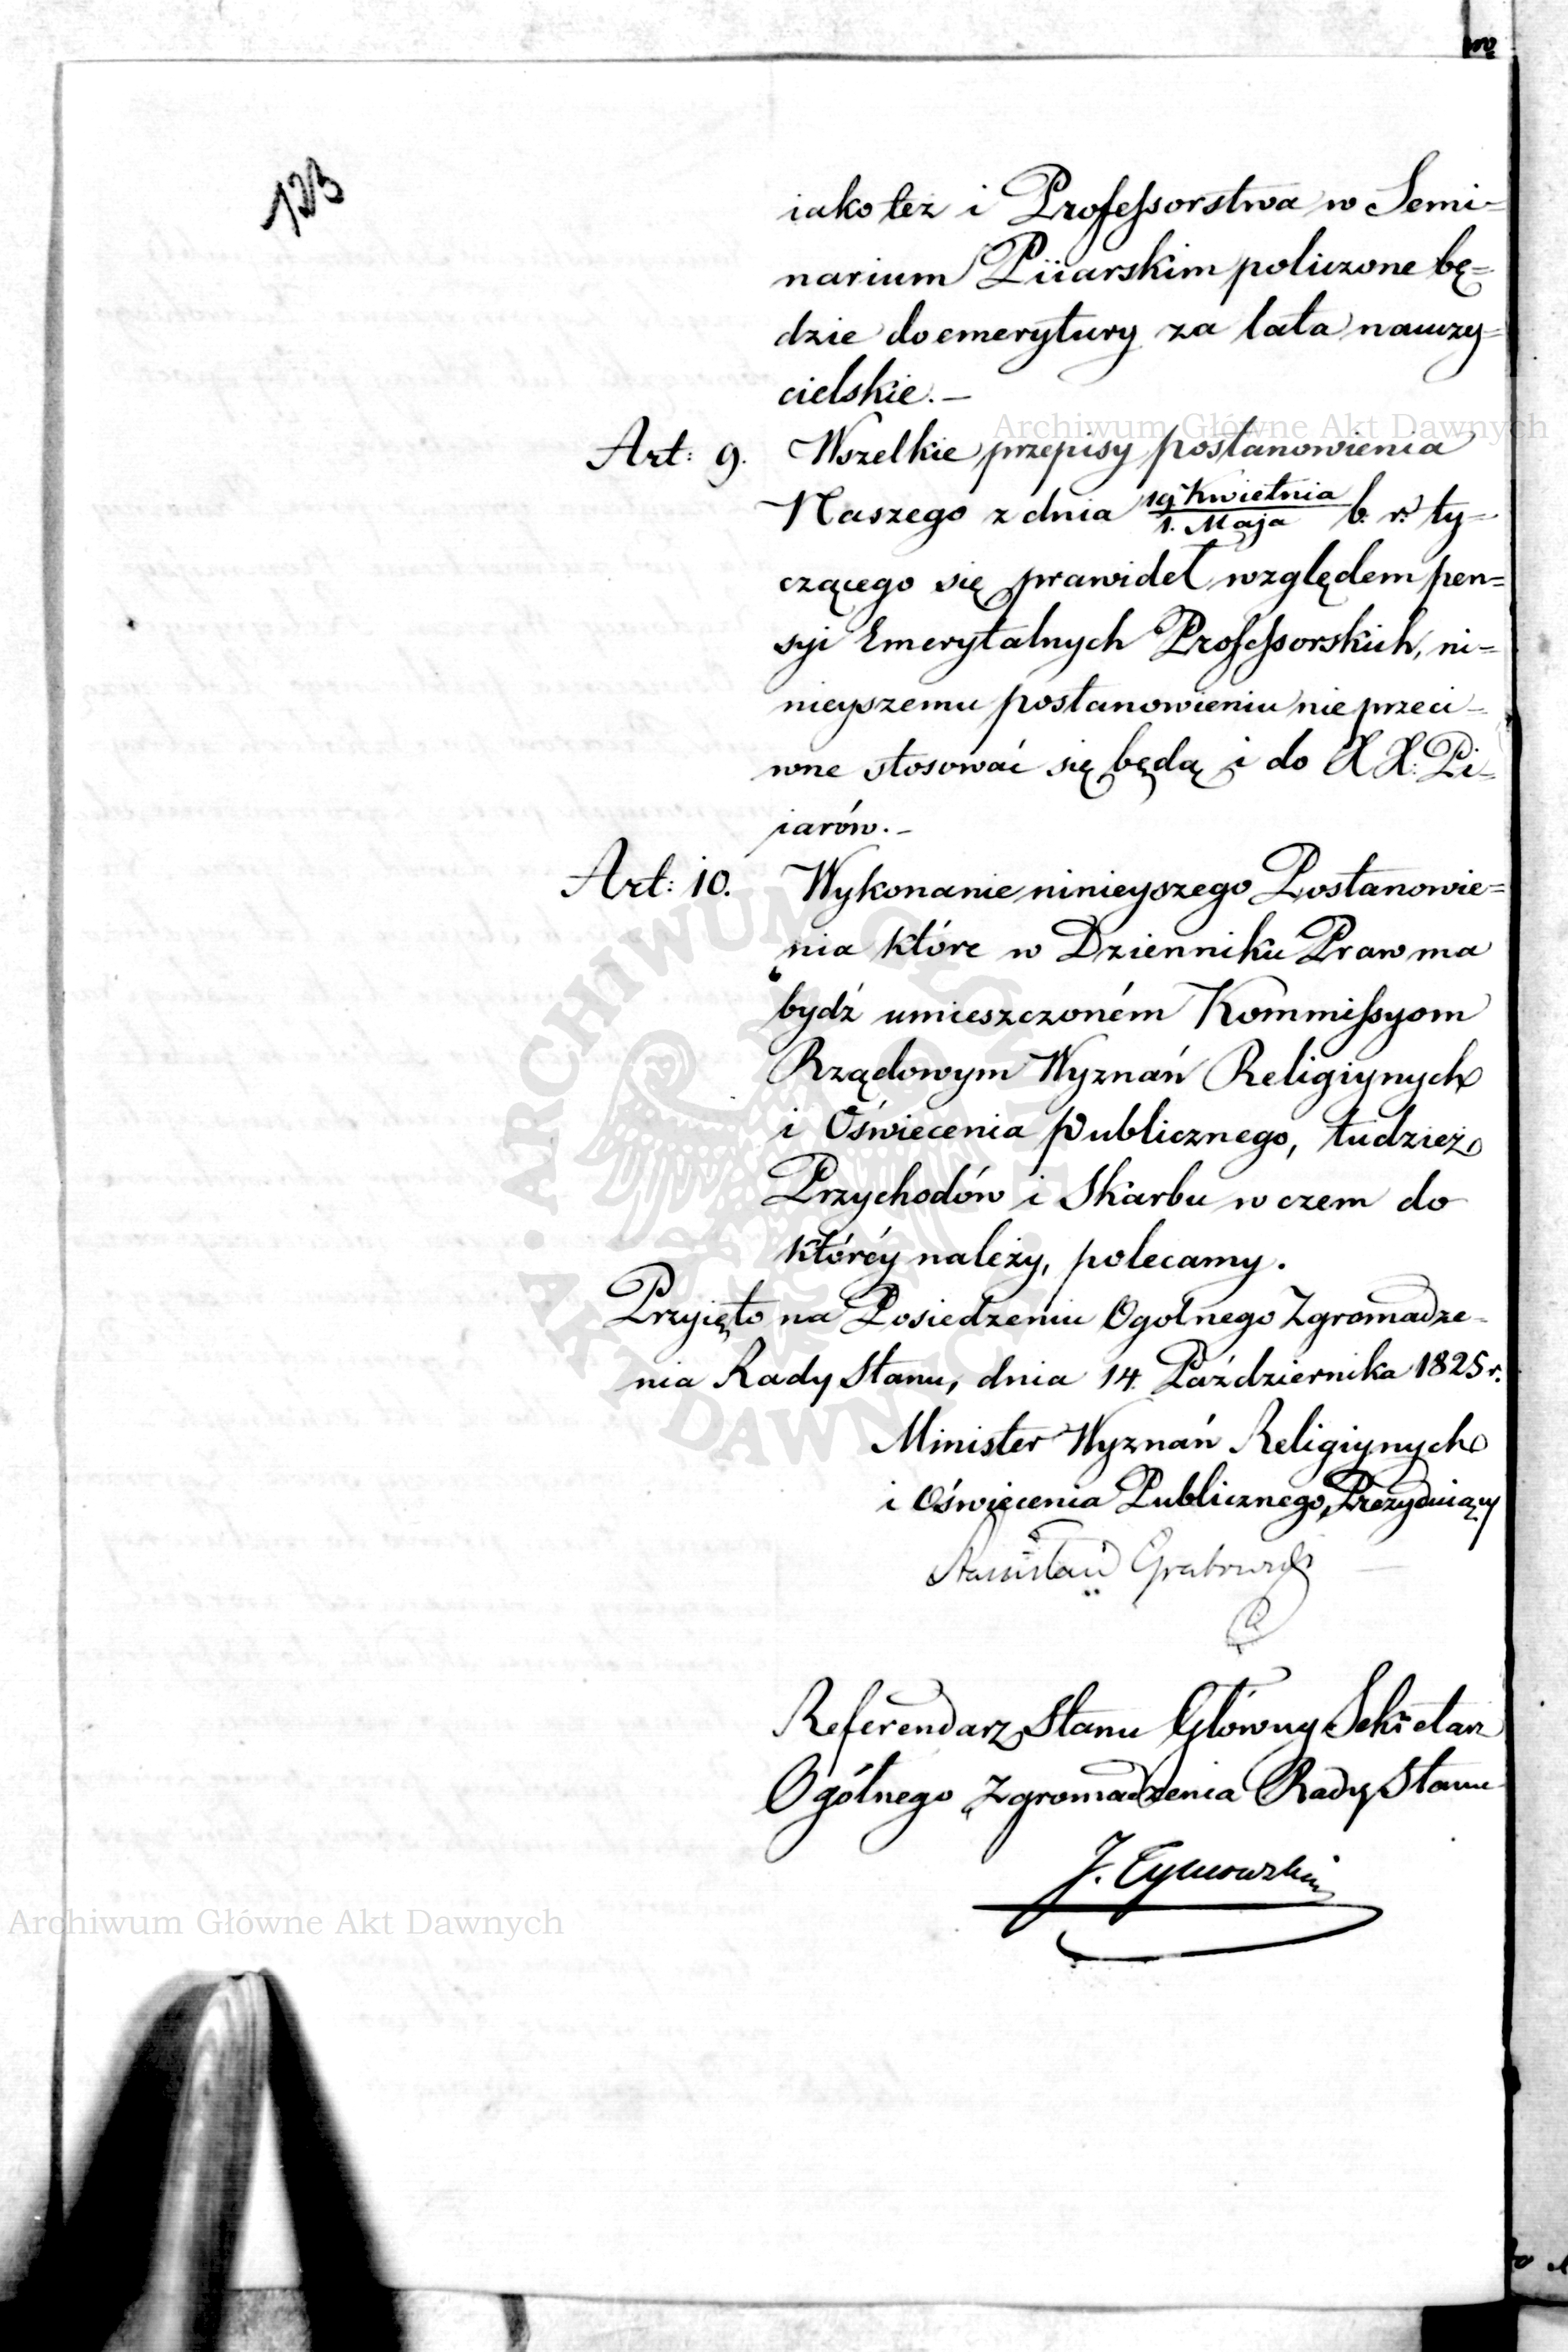 123
iako też i Professorstwa w Semi=
narium Piiarskim policzone bę=
dzie do emerytury za lata nauczy=
cielskie.—
Archiwum Główne Akt Dawnych
Art: 9. Wszelkie przepisy postanowienia
Naszego z dnia 19 Kwietnia / 1. Maja b. r. ty=
czącego się prawideł względem pen=
syi Emerytalnych Professorskich, ni=
nieyszemu postanowieniu nie przeci=
wne stosować się będą i do X X: Pi=
iarów.—
Art: 10. Wykonanie ninieyszego Postanowie=
nia które w Dzienniku Praw ma
bydź umieszczoném Kommissyom
Rządowym Wyznań Religiynych
i Oświecenia Publicznego, tudzież
Przychodów i Skarbu w czem do
któréy należy, polecamy.
Przyięto na Posiedzeniu Ogolnego Zgromadze=
nia Rady Stanu, dnia 14. Października 1825 r.
Minister Wyznań Religiynych
i Oświęcenia Publicznego, Prezyduiący
Stanisław Grabowski
Referendarz Stanu Główny Sekretarz
Ogólnego Zgromadzenia Rady Stanu
J. Tymowski
Archiwum Główne Akt Dawnych
ARCHIWUM GŁÓWNE AKT DAWNYCH